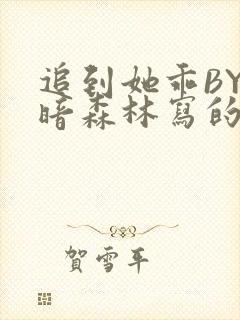 追到她乖BY
暗森林寫的
賀雪平